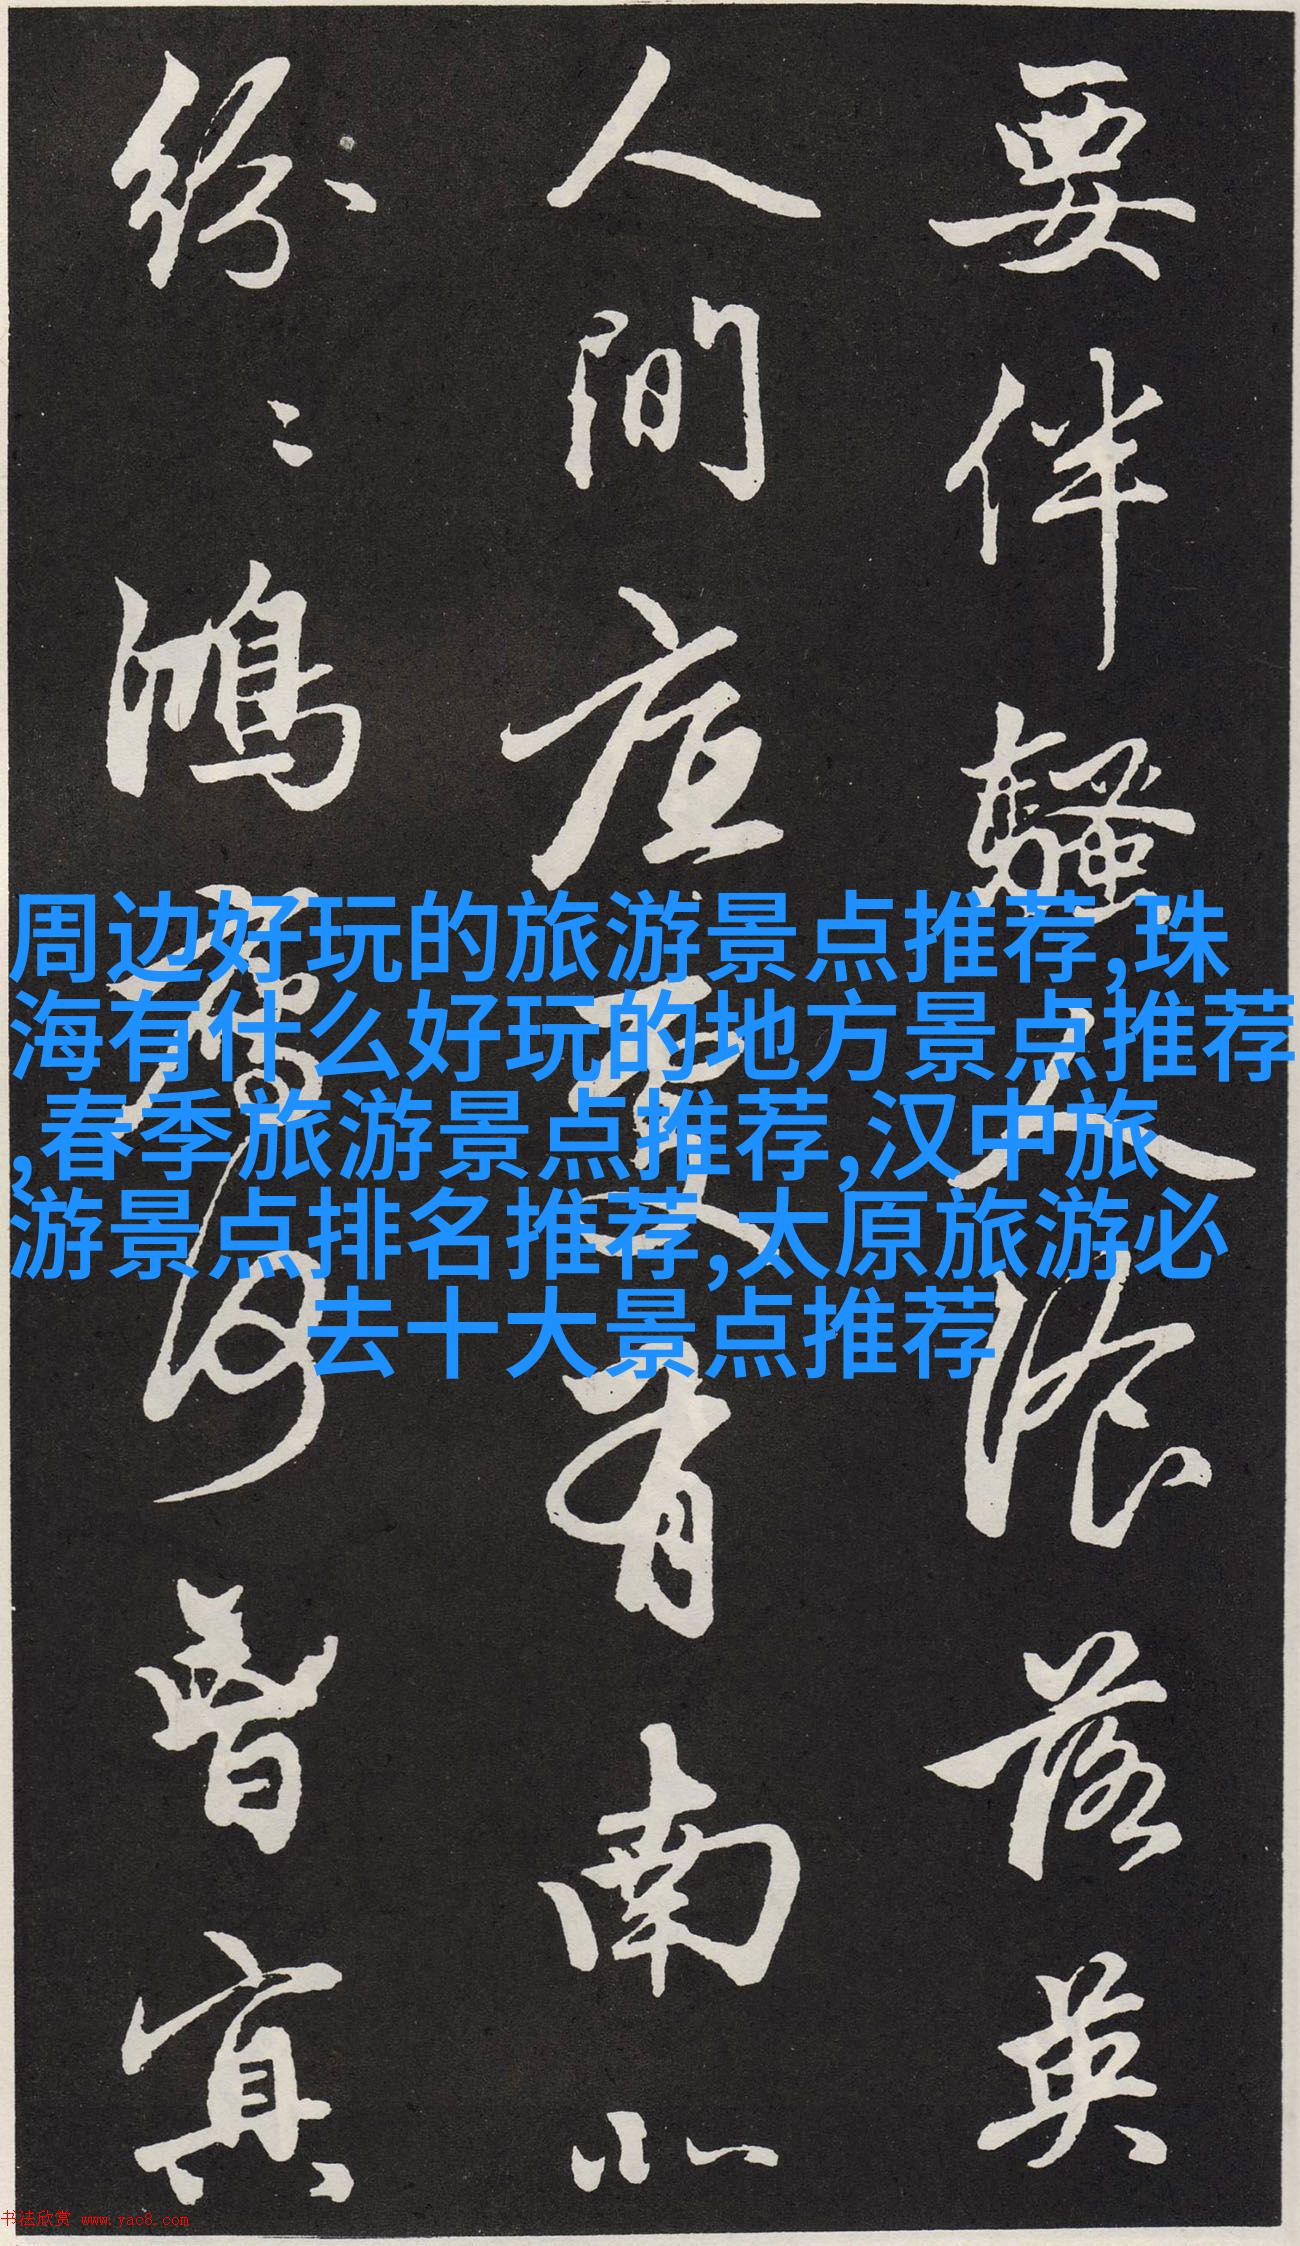 要伴騷人湌落英
人間底處有南北
紛〻鴻鴈何曾冥
周边好玩的旅游景点推荐,珠
海有什么好玩的地方景点推荐
,春季旅游景点推荐,汉中旅
游景点排名推荐,太原旅游必
去十大景点推荐
书法欣赏 www.yac8.com